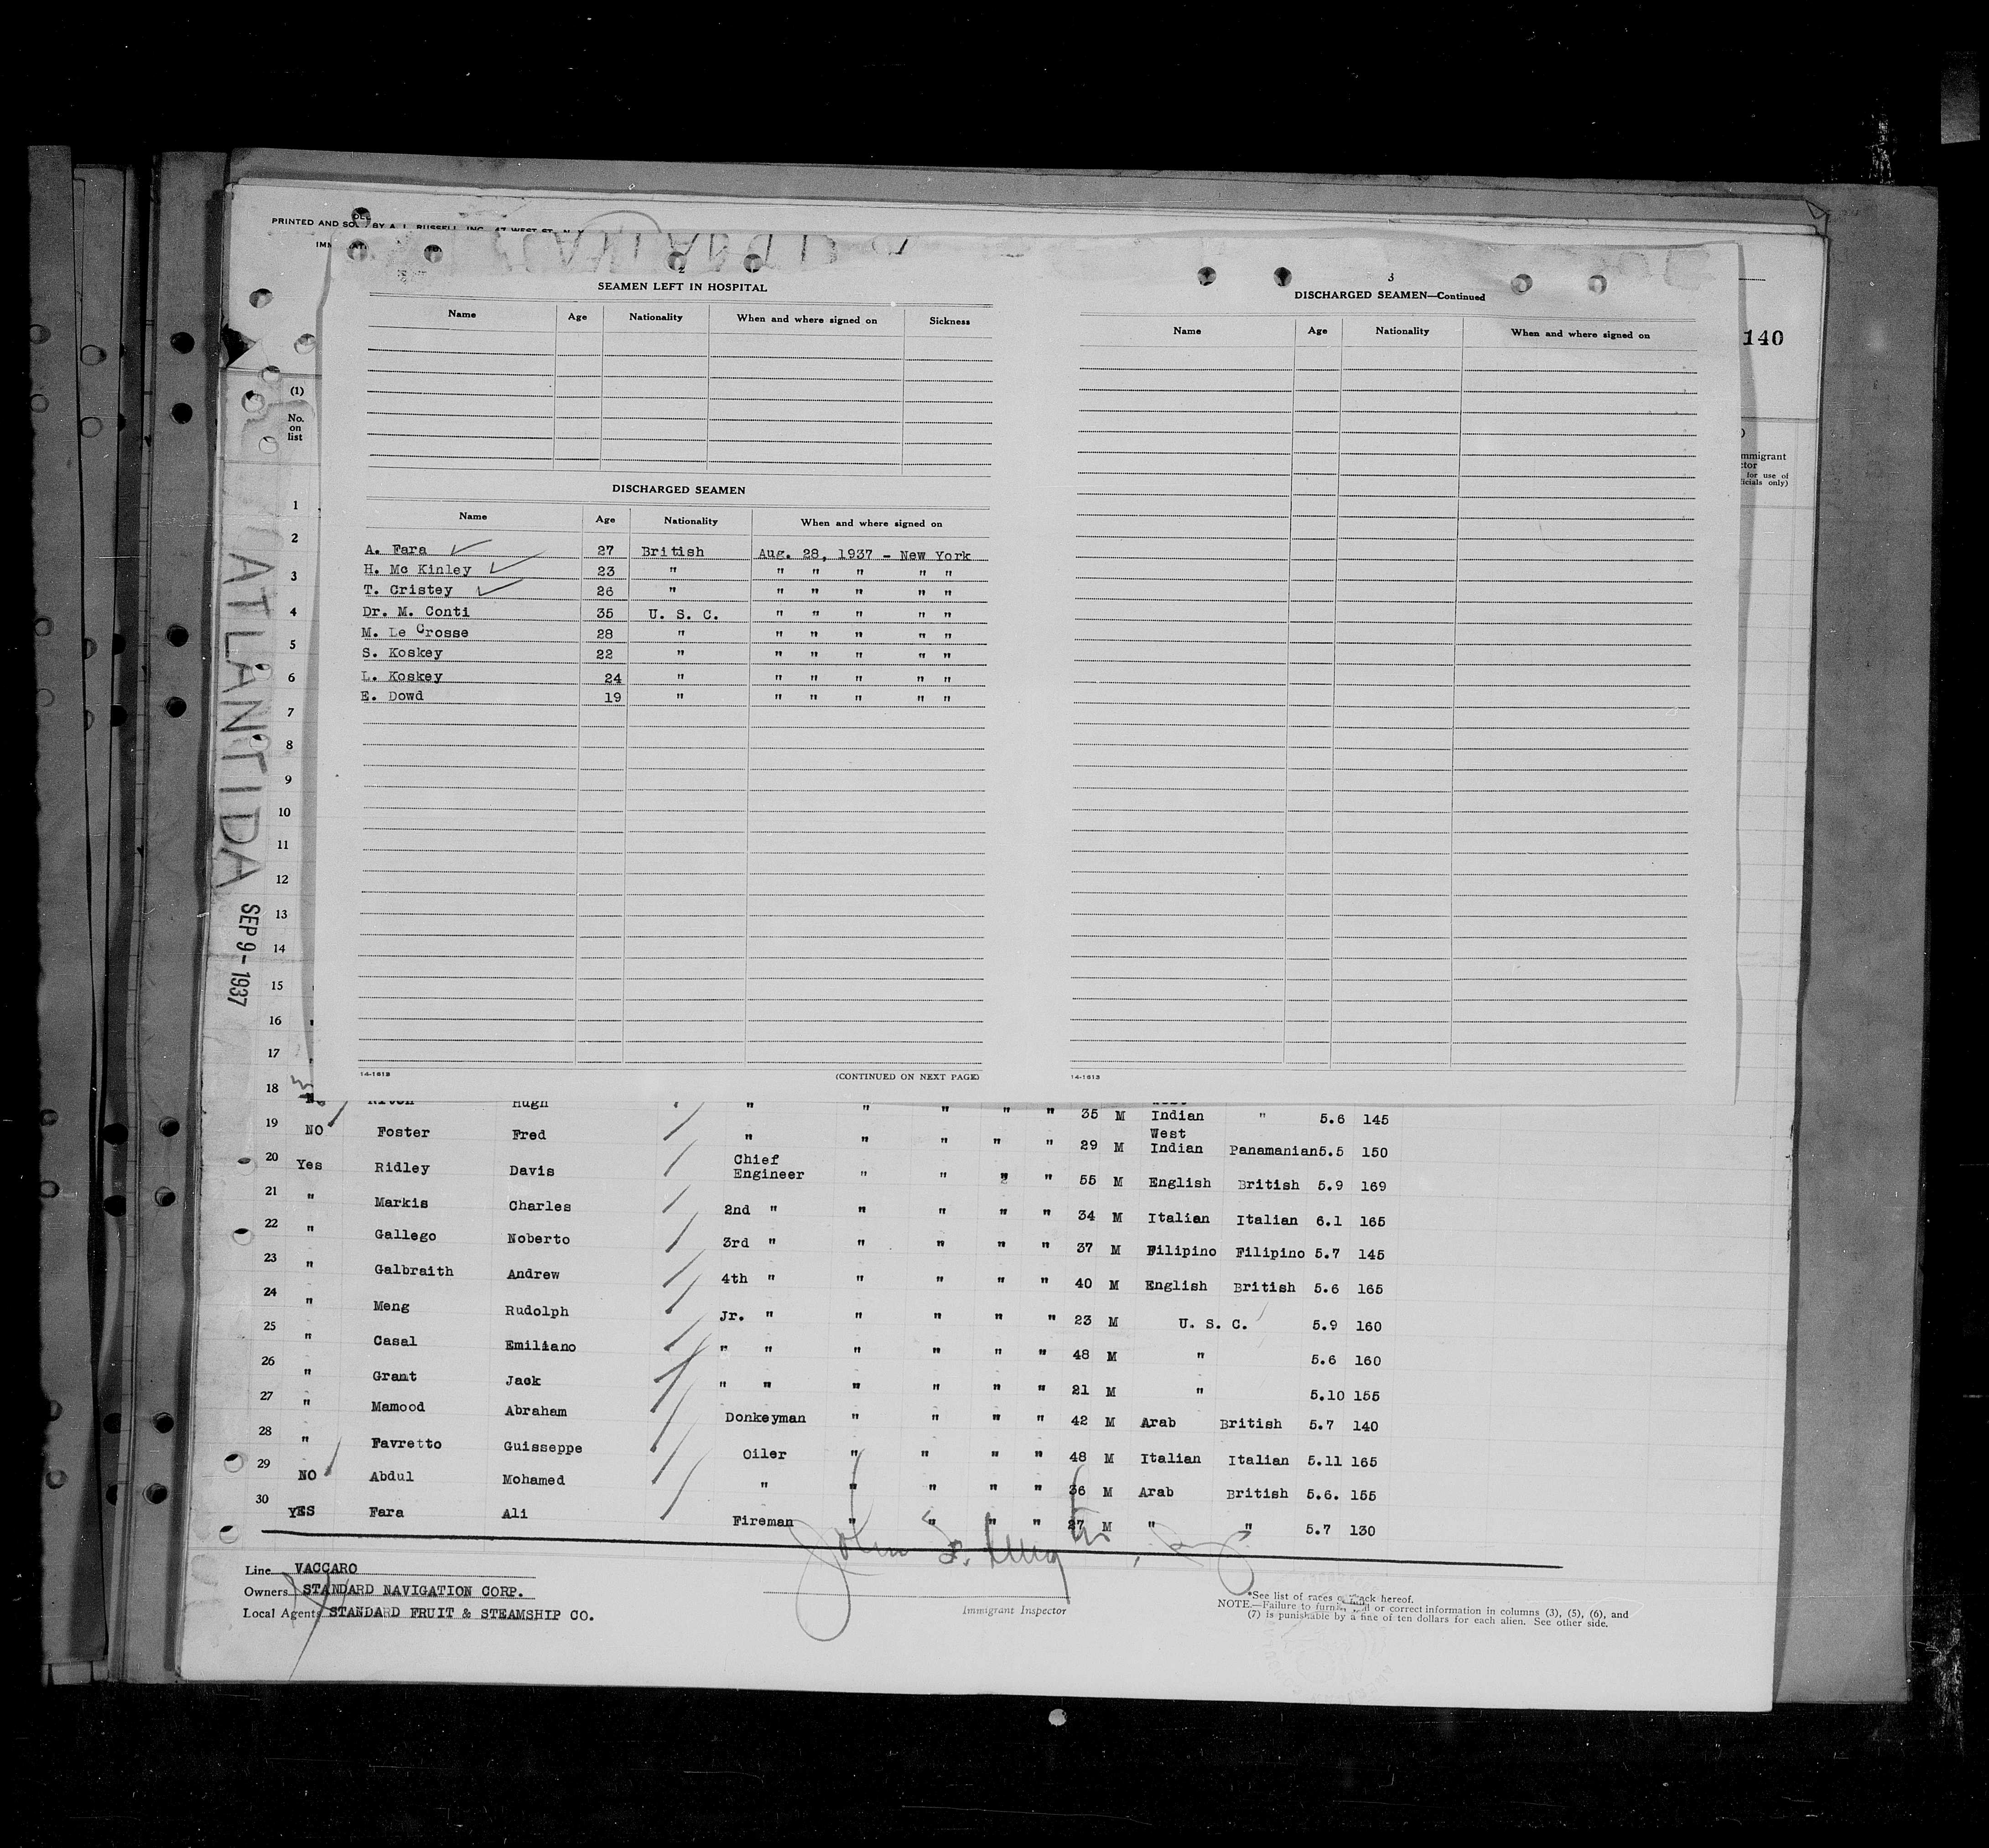 PRINTED AND SO BY A. L. RUSSELL, INC., 47 WEST ST., N. Y.
IMM
140
2
SEAMEN LEFT IN HOSPITAL
Name Age Nationality When and where signed on Sickness
DISCHARGED SEAMEN
Name Age Nationality When and where signed on
A. Fara 27 British Aug. 28, 1937 - New York
H. Mc Kinley 23 " " " " " "
T. Cristey 26 " " " " " "
Dr. M. Conti 35 U. S. C. " " " " "
M. Le Crosse 28 " " " " " "
S. Koskey 22 " " " " " "
L. Koskey 24 " " " " " "
E. Dowd 19 " " " " " "
14-1613
(CONTINUED ON NEXT PAGE)
3
DISCHARGED SEAMEN—Continued
Name Age Nationality When and where signed on
14-1613
mmigrant
ctor
for use of
ficials only)
(1)
No.
on
list
ATLANTIDA
SEP 9 - 1937
1
2
3
4
5
6
7
8
9
10
11
12
13
14
15
16
17
18 Hugh " " " " " 35 M Indian " 5.6 145
19 NO Foster Fred " " " " " 29 M West Indian Panamanian 5.5 150
20 Yes Ridley Davis Chief Engineer " " " " 55 M English British 5.9 169
21 " Markis Charles 2nd " " " " " 34 M Italian Italian 6.1 165
22 " Gallego Noberto 3rd " " " " " 37 M Filipino Filipino 5.7 145
23 " Galbraith Andrew 4th " " " " " 40 M English British 5.6 165
24 " Meng Rudolph Jr. " " " " " 23 M U. S. C. 5.9 160
25 " Casal Emiliano " " " " " " 48 M " 5.6 160
26 " Grant Jack " " " " " " 21 M " 5.10 155
27 " Mamood Abraham Donkeyman " " " " 42 M Arab British 5.7 140
28 " Favretto Guisseppe Oiler " " " " 48 M Italian Italian 5.11 165
29 NO Abdul Mohamed " " " " " 36 M Arab British 5.6. 155
30 YES Fara Ali Fireman " " " " 27 M " " 5.7 130
Line VACCARO
Owners STANDARD NAVIGATION CORP.
Local Agents STANDARD FRUIT & STEAMSHIP CO.
Immigrant Inspector
*See list of races on back hereof.
NOTE.—Failure to furnish full or correct information in columns (3), (5), (6), and
(7) is punishable by a fine of ten dollars for each alien. See other side.